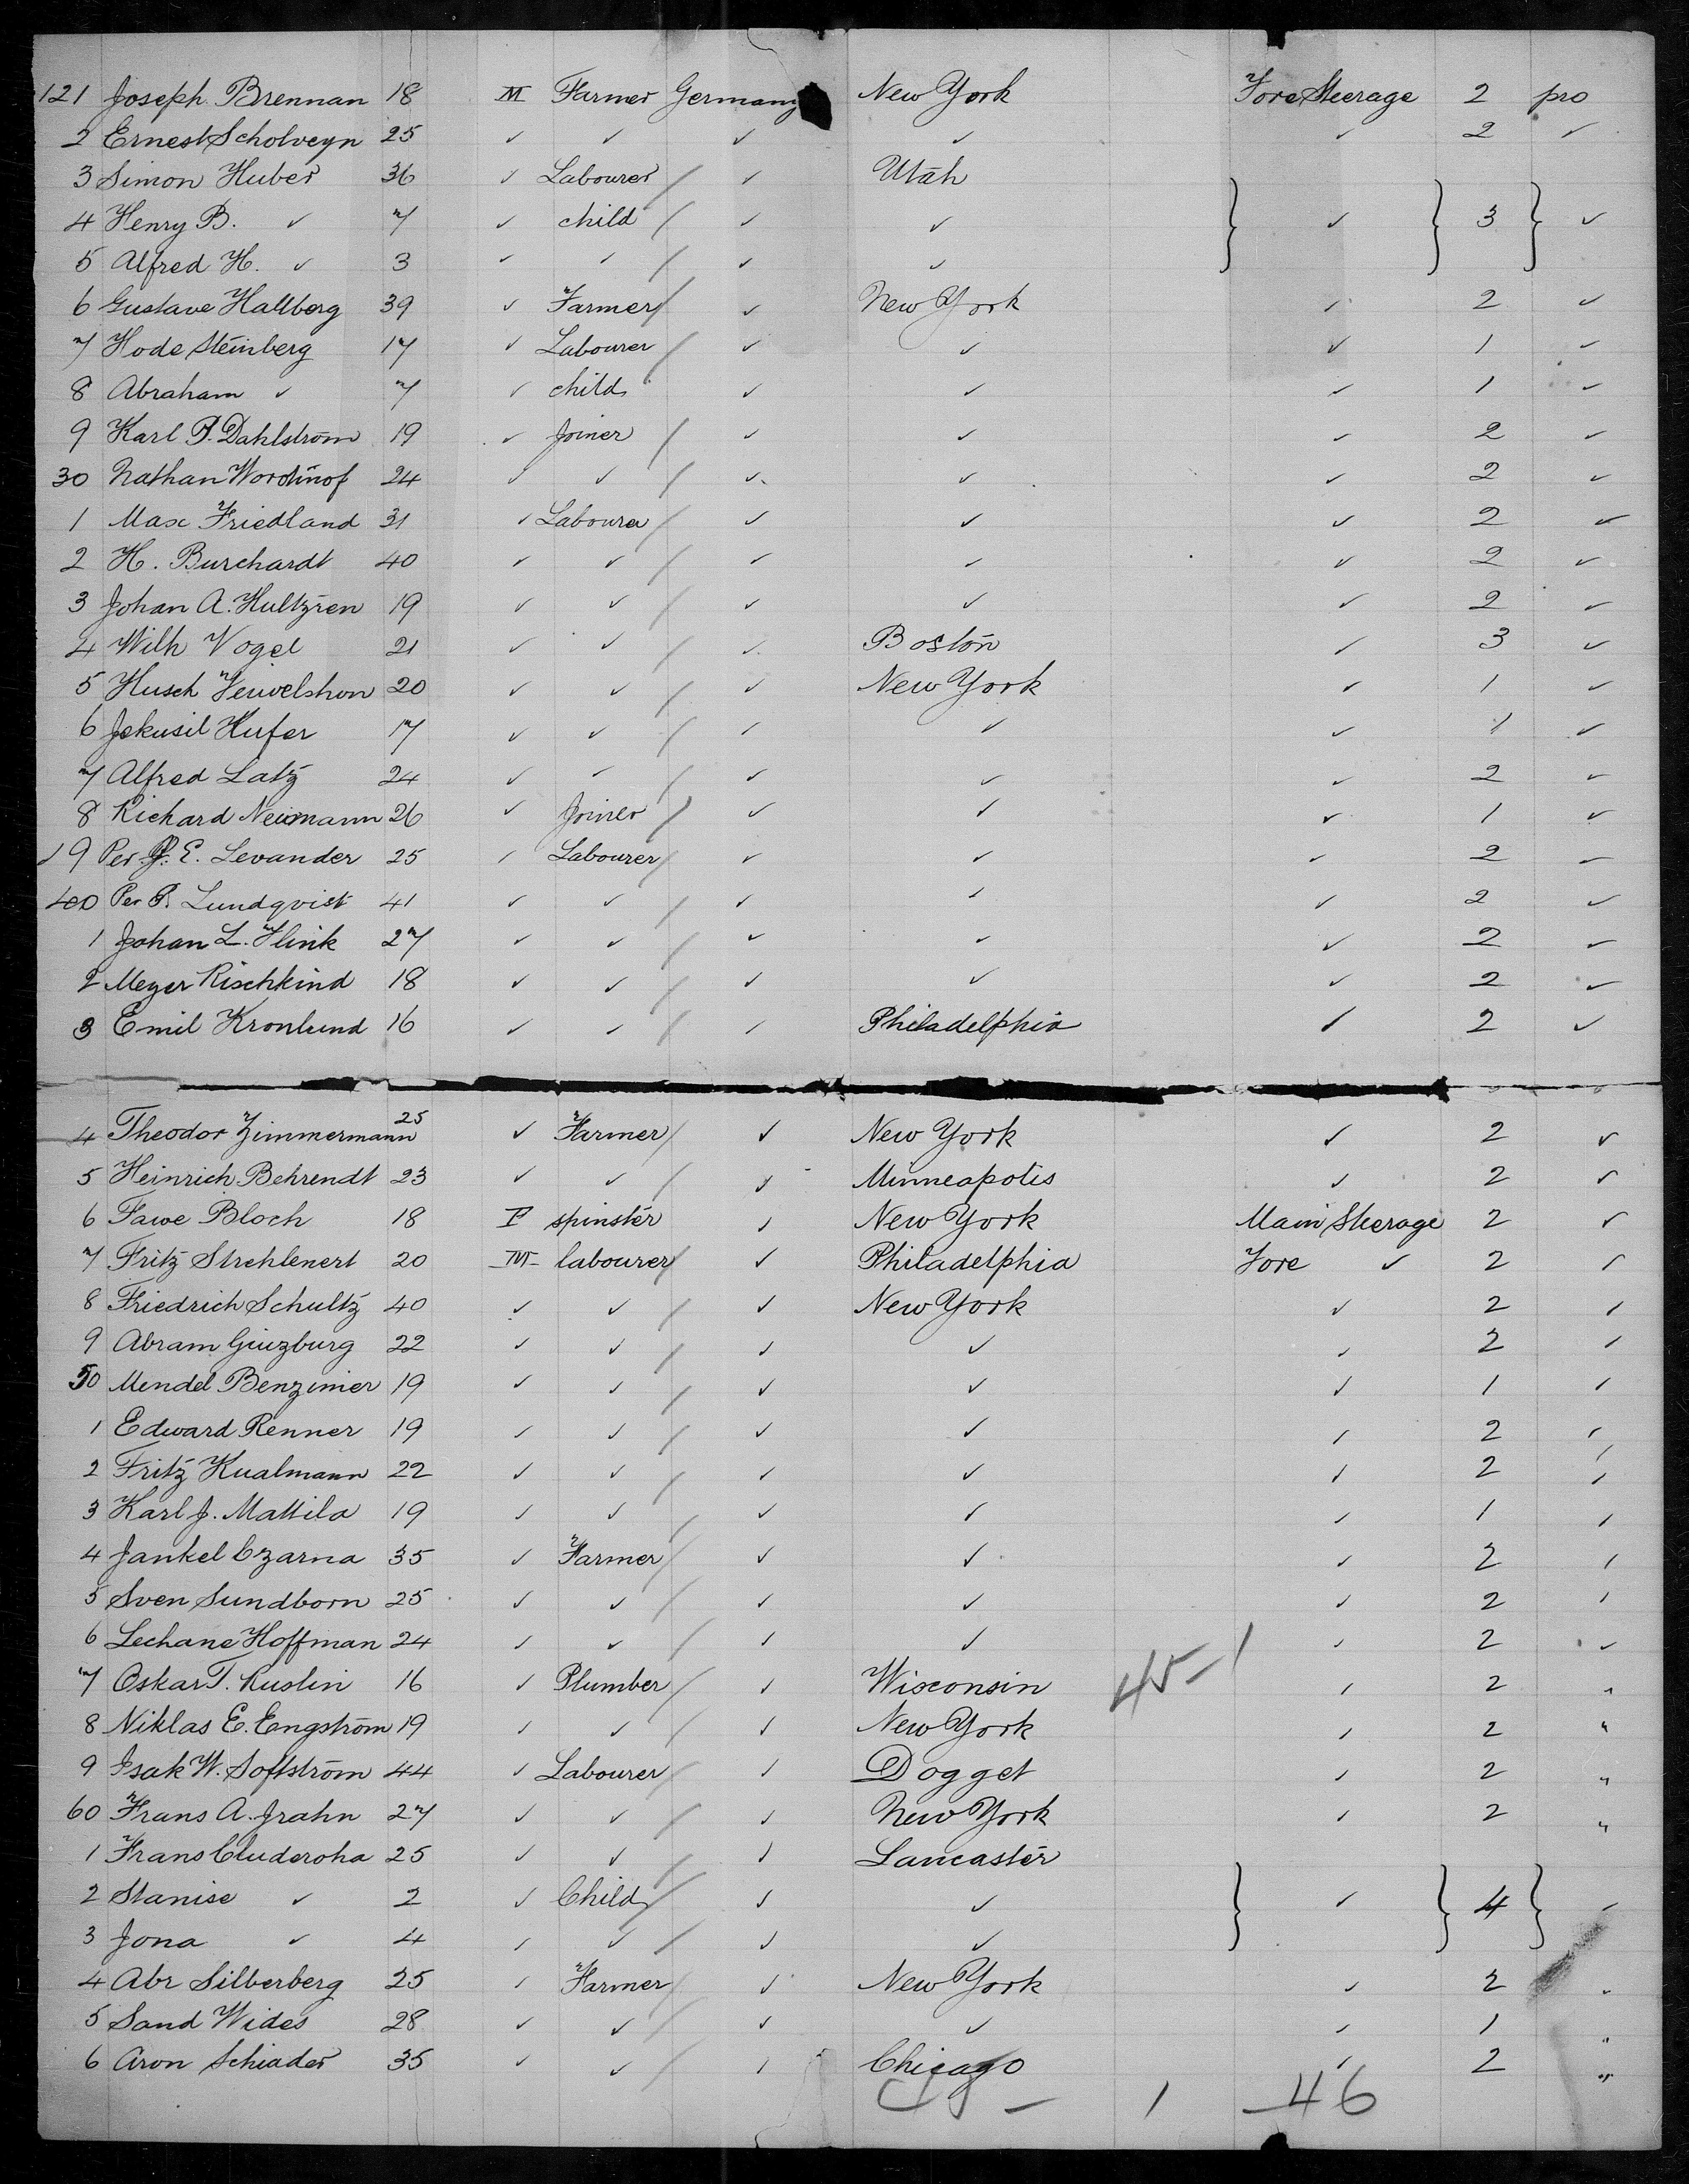 121 Joseph Brennan 18 M Farmer Germany New York Fore Steerage 2 pro
2 Ernest Scholveyn 25 ✓ ✓ ✓ ✓ ✓ 2 ✓
3 Simon Huber 36 ✓ Labourer / ✓ Utah
4 Henry B. ✓ 7 ✓ child / ✓ ✓ } ✓ } 3 } ✓
5 Alfred H. ✓ 3 ✓ ✓ / ✓ ✓
6 Gustave Hallberg 39 ✓ Farmer / ✓ New York ✓ 2 ✓
7 Hode Steinberg 17 ✓ Labourer / ✓ ✓ ✓ 1 ✓
8 Abraham ✓ 7 ✓ child ✓ ✓ ✓ 1 ✓
9 Karl P. Dahlström 19 ✓ Joiner / ✓ ✓ ✓ 2 ✓
30 Nathan 24 ✓ ✓ / ✓ ✓ ✓ 2 ✓
1 Max Friedland 31 ✓ Labourer / ✓ ✓ ✓ 2 ✓
2 H. Burchardt 40 ✓ ✓ / ✓ ✓ ✓ 2 ✓
3 Johan A. Hultzren 19 ✓ ✓ / ✓ ✓ ✓ 2 ✓
4 Wilh Vogel 21 ✓ ✓ / ✓ Boston ✓ 3 ✓
5 Husch 20 ✓ ✓ / ✓ New York ✓ 1 ✓
6 Jekusil Hufer 17 ✓ ✓ / ✓ ✓ ✓ 1 ✓
7 Alfred Latz 24 ✓ ✓ / ✓ ✓ ✓ 2 ✓
8 Richard Neumann 26 ✓ Joiner / ✓ ✓ ✓ 1 ✓
19 Per J. E. Levander 25 ✓ Labourer / ✓ ✓ ✓ 2 ✓
40 Per P. Lundqvist 41 ✓ ✓ / ✓ ✓ ✓ 2 ✓
1 Johan L. Flink 27 ✓ ✓ / ✓ ✓ ✓ 2 ✓
2 Meyer Rischkind 18 ✓ ✓ / ✓ ✓ ✓ 2 ✓
3 Emil Kronlund 16 ✓ ✓ / ✓ Philadelphia ✓ 2 ✓
4 Theodor Zimmermann 25 ✓ Farmer / ✓ New York ✓ 2 ✓
5 Heinrich Behrendt 23 ✓ ✓ / ✓ Minneapolis ✓ 2 ✓
6 Fawe Bloch 18 F spinster ✓ New York Main Steerage 2 ✓
7 Fritz Strehlenert 20 M labourer / ✓ Philadelphia Fore ✓ 2 ✓
8 Friedrich Schultz 40 ✓ ✓ / ✓ New York ✓ 2 ✓
9 Abram Ginzburg 22 ✓ ✓ / ✓ ✓ ✓ 2 ✓
50 Mendel Benzinier 19 ✓ ✓ / ✓ ✓ ✓ 1 ✓
1 Edward Renner 19 ✓ ✓ / ✓ ✓ ✓ 2 ✓
2 Fritz Kualmann 22 ✓ ✓ / ✓ ✓ ✓ 2 ✓
3 Karl J. Mattila 19 ✓ ✓ / ✓ ✓ ✓ 1 ✓
4 Jankel Czarna 35 ✓ Farmer / ✓ ✓ ✓ 2 ✓
5 Sven Sundborn 25 ✓ ✓ / ✓ ✓ ✓ 2 ✓
6 Lechane Hoffman 24 ✓ ✓ / ✓ ✓ ✓ 2 ✓
7 Oskar T. Ruslin 16 ✓ Plumber / ✓ Wisconsin 45-1 ✓ 2 "
8 Niklas E. Engström 19 ✓ ✓ / ✓ New York ✓ 2 "
9 Isak W. Softström 44 ✓ Labourer / ✓ Dogget ✓ 2 "
60 Frans A. Jrahn 27 ✓ ✓ / ✓ New York ✓ 2 "
1 Frans Cluderoha 25 ✓ ✓ / ✓ Lancaster
2 Stanise ✓ 2 ✓ Child / ✓ ✓ } ✓ } 4 } ✓
3 Jona ✓ 4 ✓ ✓ / ✓ ✓
4 Abr Silberberg 25 ✓ Farmer / ✓ New York ✓ 2 "
5 Sand Wides 28 ✓ ✓ / ✓ ✓ ✓ 1 "
6 Aron Schiader 35 ✓ ✓ / ✓ Chicago ✓ 2 "
45 - 1 - 46